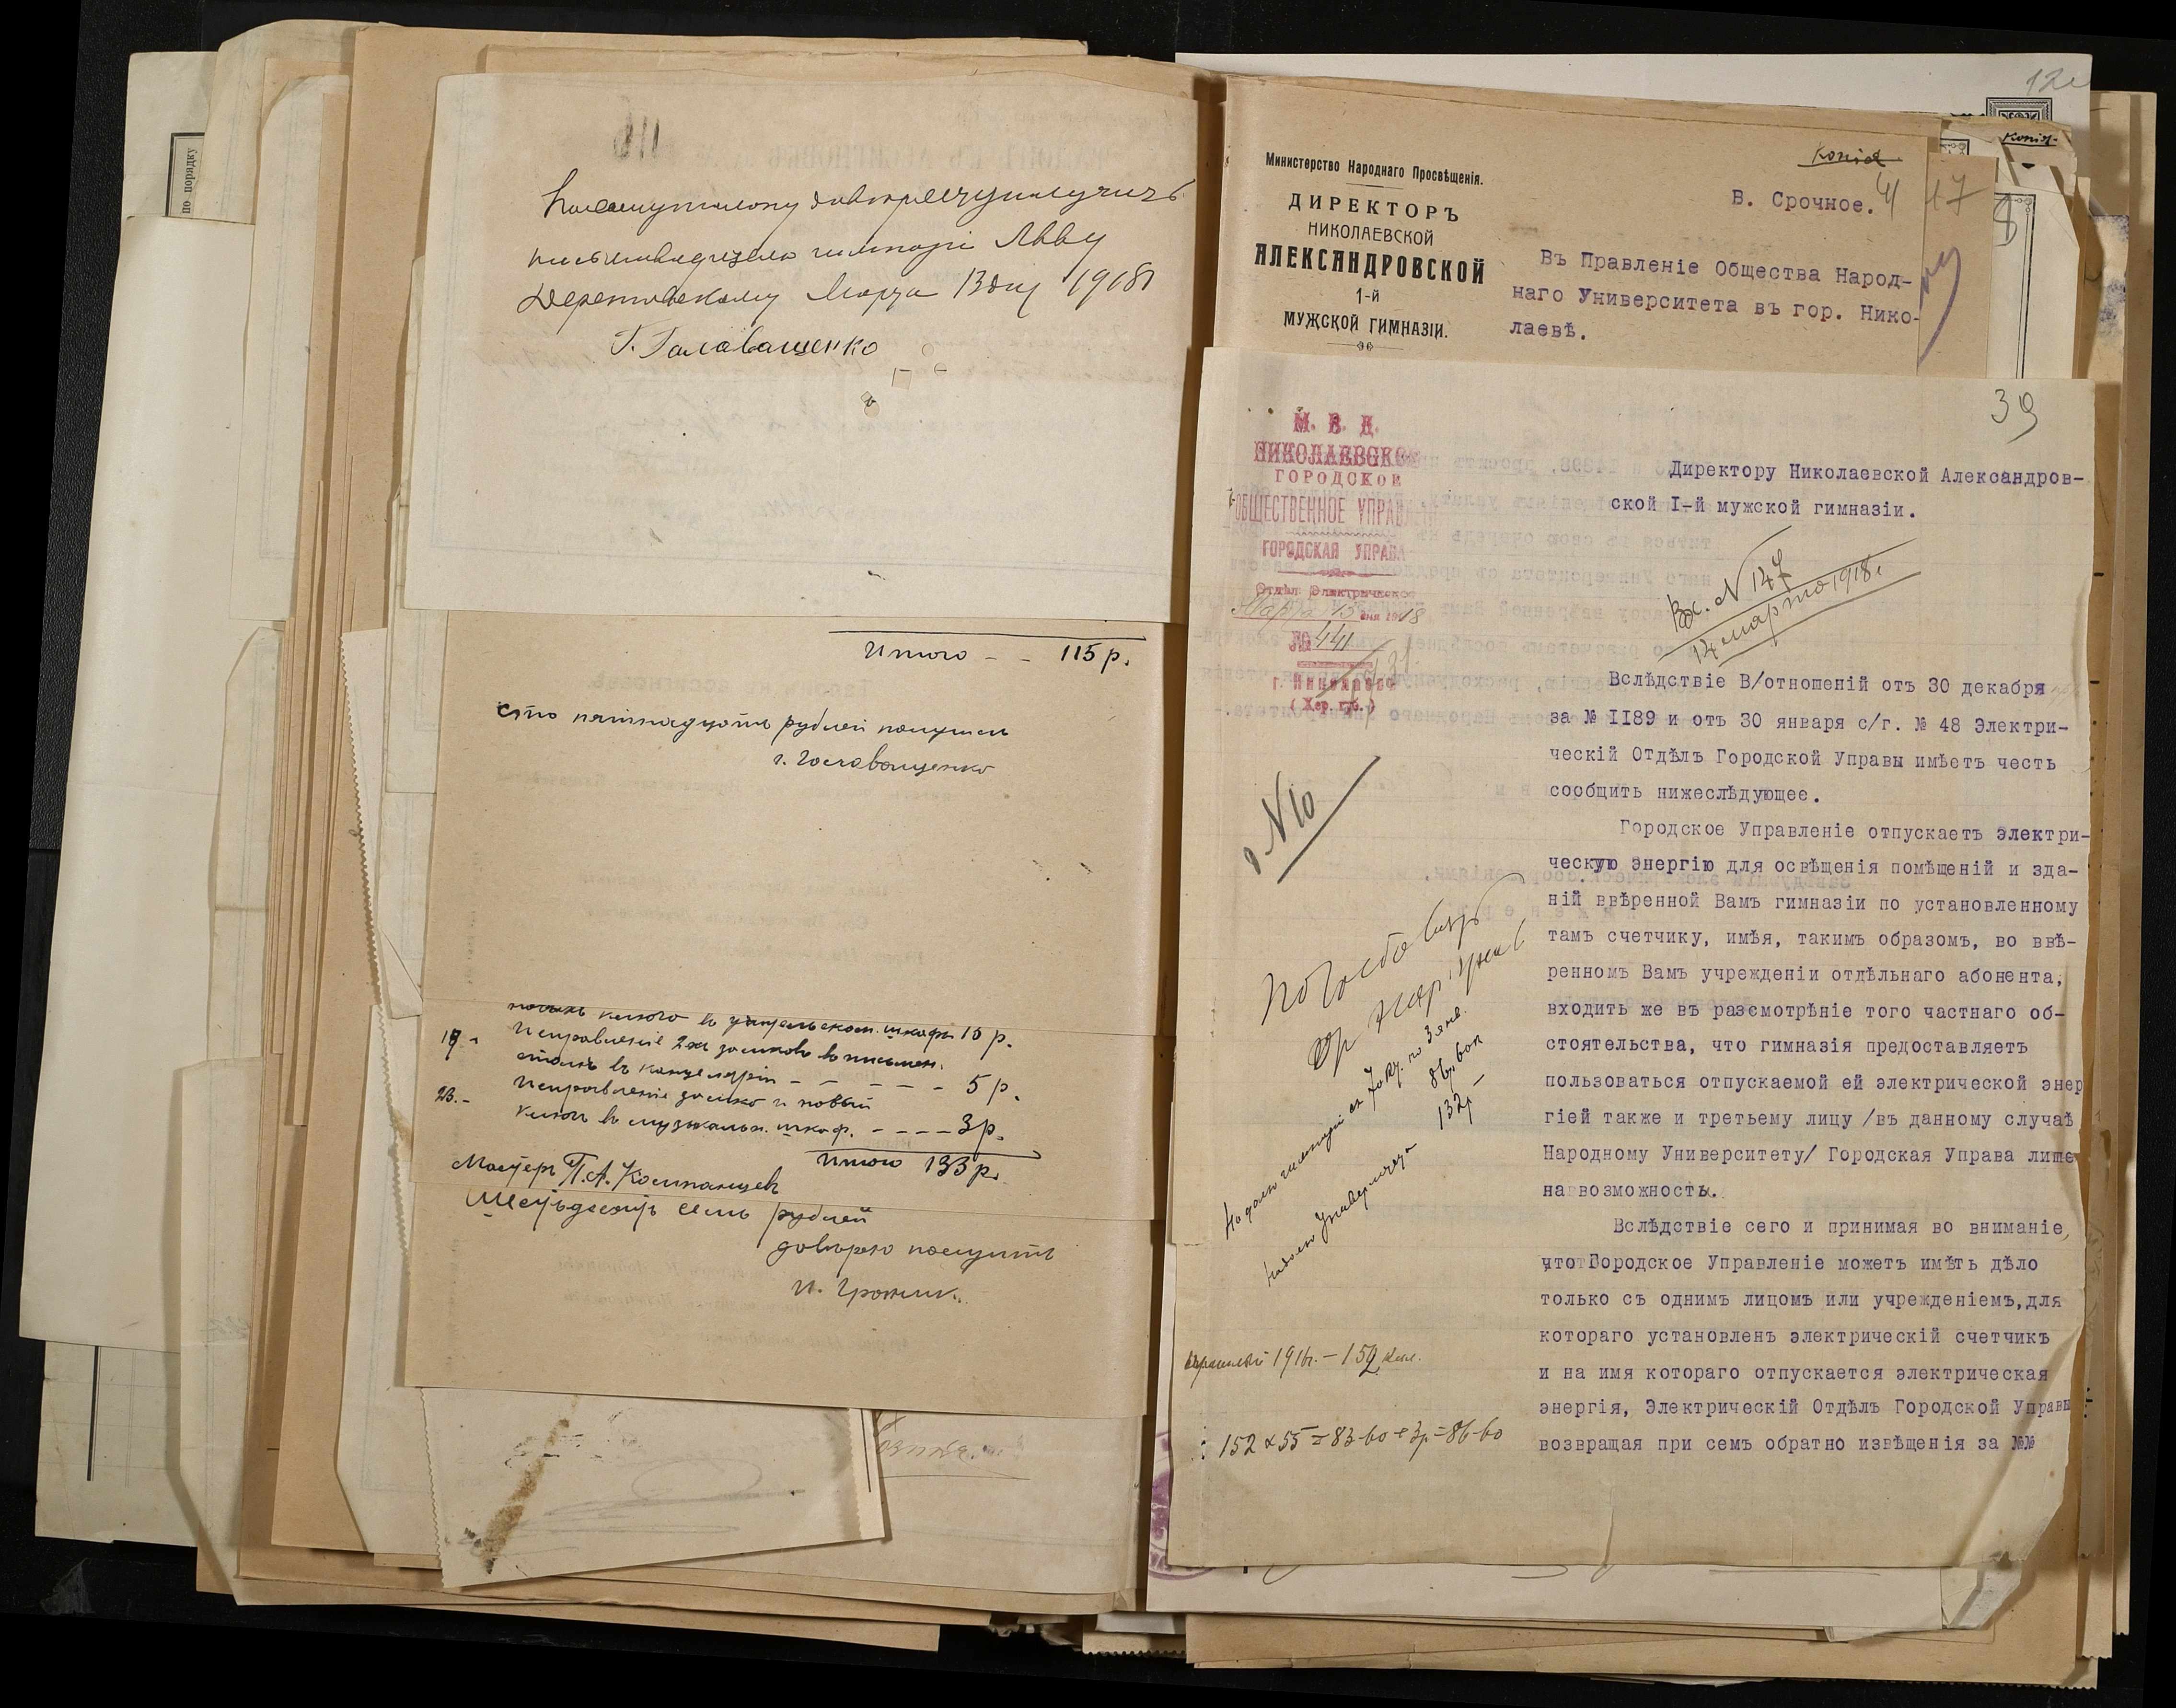 по порядку
По сему талону доверяю получить
письмоводителю гимназіи Льву
Марта 13 дня 1918 г
Г. Галаващенко
Итого - - 115 р.
сто пятнадцать рублей получил
Г. Галаващенко
ключ в шкафъ 10 р.
19 - Исправленіе 2хъ замковъ в письмен.
столъ въ канцелярію - - - - - 5 р.
23.- Исправленіе замка и новый
ключъ в музыкальн. шкаф. - - - - 3 р.
Итого 133 р.
Мастеръ П.А.
Шестьдесятъ семь рублей
довѣряю получить
120
Копія
Копія
Министерство Народнаго Просвѣщенія.
ДИРЕКТОРЪ
НИКОЛАЕВСКОЙ
АЛЕКСАНДРОВСКОЙ
1-й
МУЖСКОЙ ГИМНАЗІИ.
В. Срочное.
41
47
Въ Правленіе Общества Народ-
наго Университета въ гор. Нико-
лаевѣ.
39
М. В. Д.
НИКОЛАЕВСКОЕ
ГОРОДСКОЕ
ОБЩЕСТВЕННОЕ УПРАВЛЕНІЕ
ГОРОДСКАЯ УПРАВА
Отдѣл. Электрическое
Марта 13 дня 1918
№ 441
г. Николаевъ
(Хер. губ.)
Директору Николаевской Александров-
ской I-й мужской гимназіи.
Вх. N 147
14 марта 1918 г.
Вслѣдствіе В/отношеній отъ 30 декабря
за № II89 и отъ 30 января с/г. № 48 Электри-
ческій Отдѣлъ Городской Управы имѣетъ честь
сообщить нижеслѣдующее.
Городское Управленіе отпускаетъ электри-
ческую энергію для освѣщенія помѣщеній и зда-
ній ввѣренной Вамъ гимназіи по установленному
тамъ счетчику, имѣя, такимъ образомъ, во ввѣ-
ренномъ Вамъ учрежденіи отдѣльнаго абонента,
входить же въ разсмотрѣніе того частнаго об-
стоятельства, что гимназія предоставляетъ
пользоваться отпускаемой ей электрической энер
гіей также и третьему лицу /въ данному случаѣ
Народному Университету/ Городская Управа лише-
на возможность.
Вслѣдствіе сего и принимая во вниманіе,
что Городское Управленіе можетъ имѣть дѣло
только съ однимъ лицомъ или учрежденіемъ,для
котораго установленъ электрическій счетчикъ
и на имя котораго отпускается электрическая
энергія, Электрическій Отдѣлъ Городской Управы
возвращая при семъ обратно извѣщенія за №№
N 10
На долю гимназіи
86р 60к
на долю Университета 132р -
1916г. - 152 кил.
152 x 55 = 83-60 + 3р = 86-60